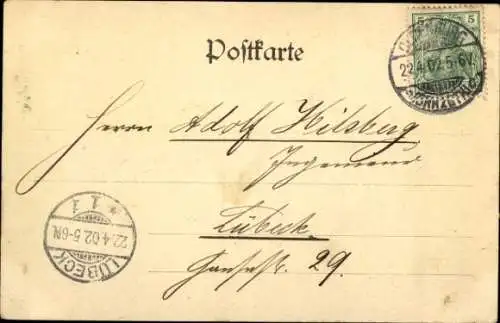 5 5
22.4.02.5-6V.
Postkarte
Herrn Adolf Hilsberg
Ingenieur
Lübeck
29.
LÜBECK
22.4.02.5-6N.
* 1 1